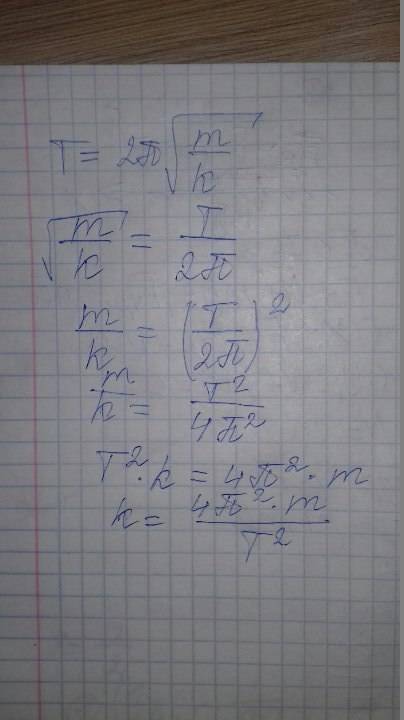 T = 2π√(m/k)
√(m/k) = T/2π
m/k = (T/2π)²
m/k = T²/4π²
T² · k = 4π² · m
k = 4π² · m/T²